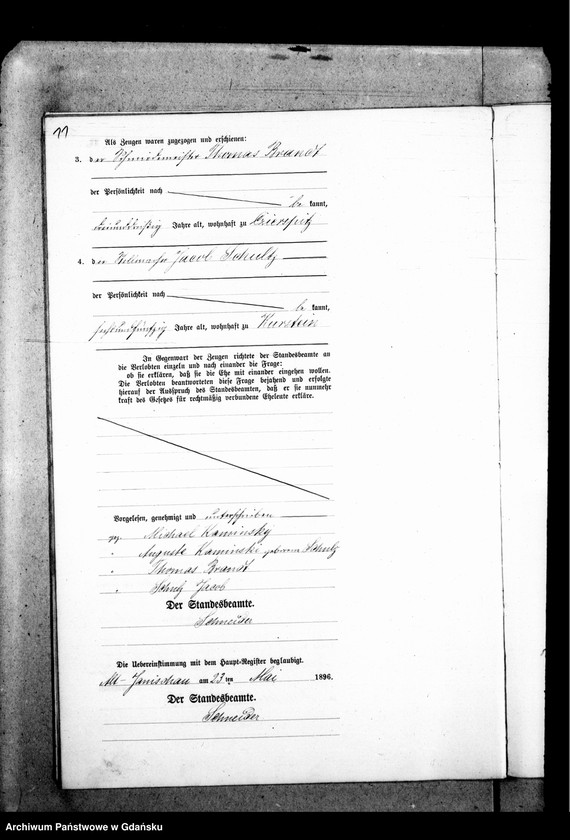 11
Als Zeugen waren zugezogen und erschienen:
3. der Schmiedemeister Thomas Brandt
der Persönlichkeit nach
be kannt,
dreiunddreißig Jahre alt, wohnhaft zu
4. der Jacob Schultz
der Persönlichkeit nach
be kannt,
sechsundfünfzig Jahre alt, wohnhaft zu Kurstein
In Gegenwart der Zeugen richtete der Standesbeamte an
die Verlobten einzeln und nach einander die Frage:
ob sie erklären, daß sie die Ehe mit einander eingehen wollen.
Die Verlobten beantworteten diese Frage bejahend und erfolgte
hierauf der Ausspruch des Standesbeamten, daß er sie nunmehr
kraft des Gesetzes für rechtmäßig verbundene Eheleute erkläre.
Vorgelesen, genehmigt und unterschrieben
gz. Michael Kaminsky
" Auguste Kaminski geborene Schulz
" Thomas Brandt
" Schulz Jacob
Der Standesbeamte.
Schneider
Die Uebereinstimmung mit dem Haupt-Register beglaubigt.
Alt-Janischau am 23 ten Mai 1896.
Der Standesbeamte.
Schneider
Archiwum Państwowe w Gdańsku